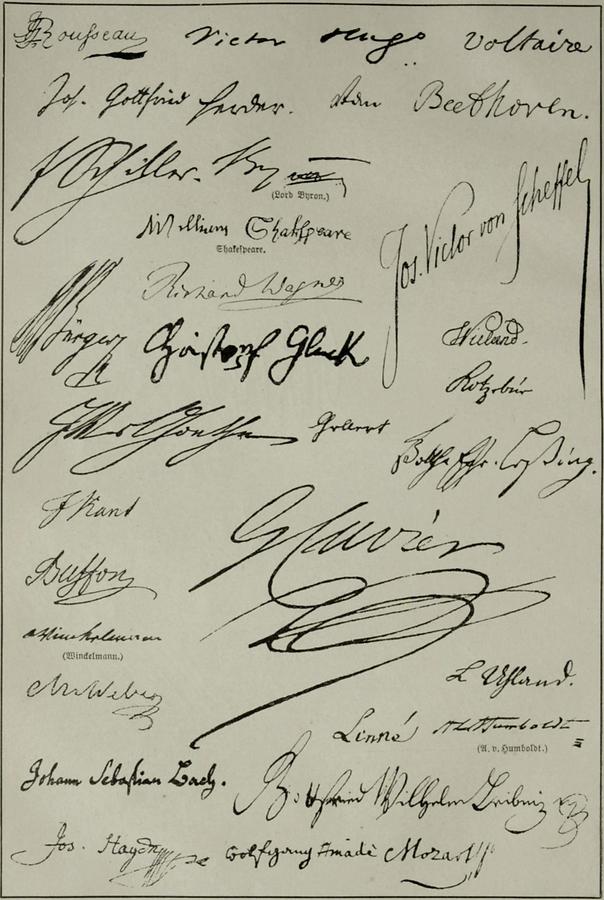 JJRousseau Victor Hugo Voltaire
Joh. Gottfried Herder. van Beethoven.
Schiller. Byron
(Lord Byron.)
William Shakspeare
Shakespeare.
Jos. Victor von Scheffel
Richard Wagner
Bürger Christoph Gluck Wieland.
Kotzebue
JWvGoethe Gellert
Gotth. Ephr. Leßing.
J Kant
G Cuvier
Buffon
Winckelmann
(Winckelmann.)
CMvWeber
L Uhland.
Linné AlHumboldt
(A. v. Humboldt.)
Johann Sebastian Bach.
Gottfried Wilhelm Leibniz
Jos. Haydn Wolfgang Amadè Mozart